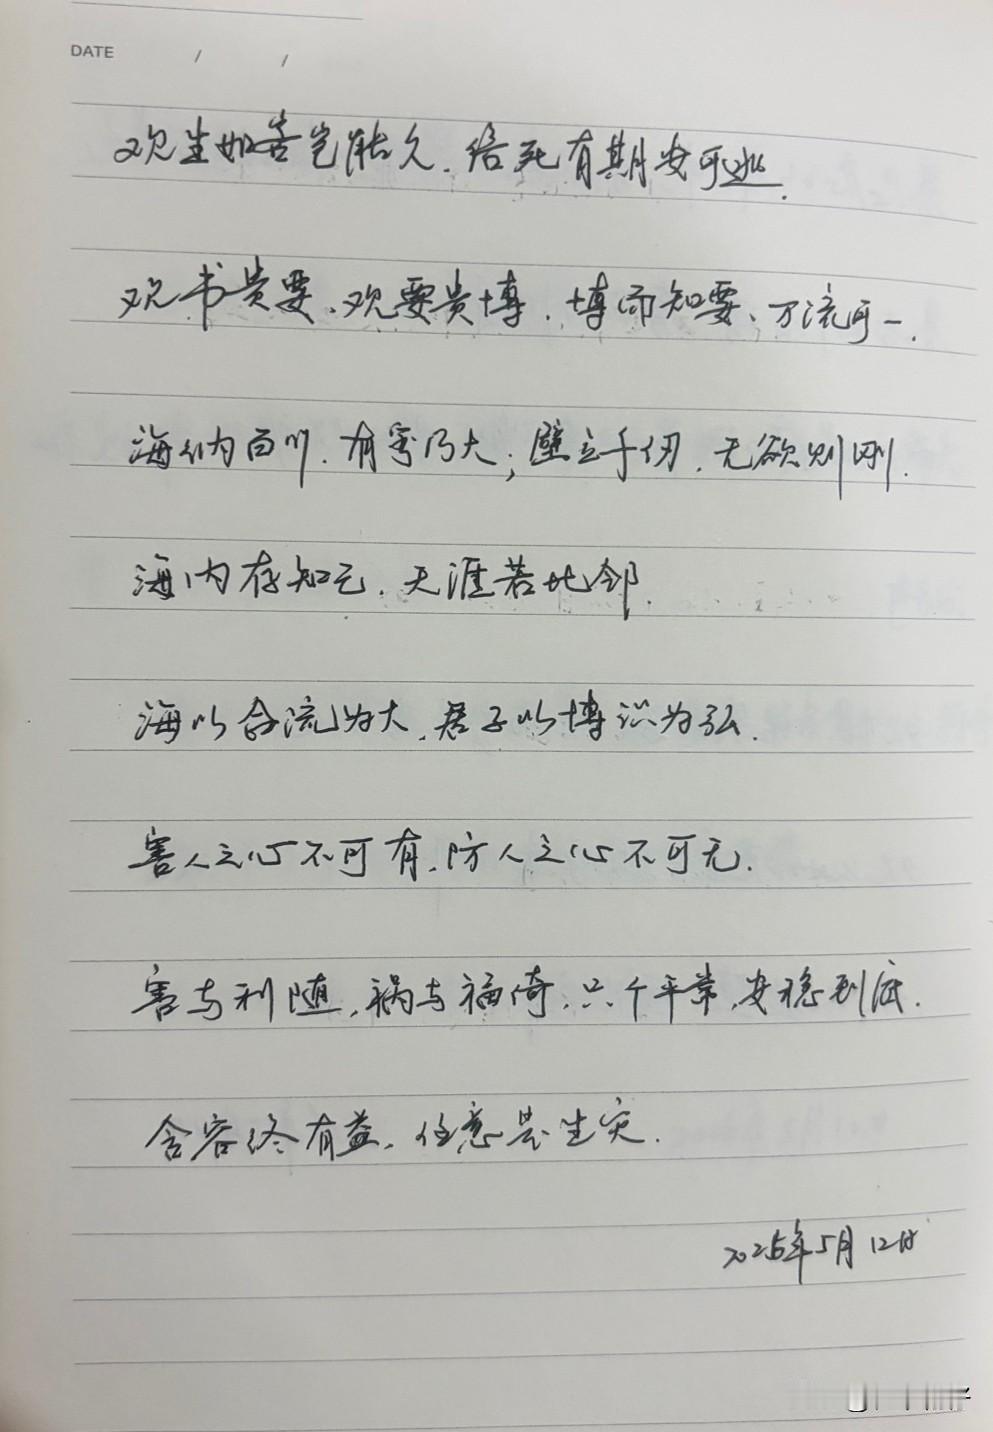 DATE / /
观生如客岂能久，给死有期安可逃。
观书贵要、观要贵博，博而知要、万流可一。
海纳百川，有容乃大；壁立千仞，无欲则刚。
海内存知己，天涯若比邻。
海以合流为大，君子以博识为弘。
害人之心不可有，防人之心不可无。
害与利随，祸与福倚，只个平常，安稳到底。
含容终有益，任意是生灾。
2025年5月12日